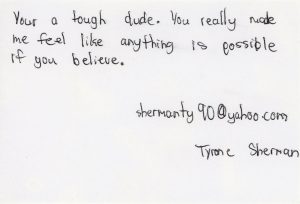 Your a tough dude. You really made
me feel like anything is possible
if you believe.
shermanty90@yahoo.com
Tyrone Sherman